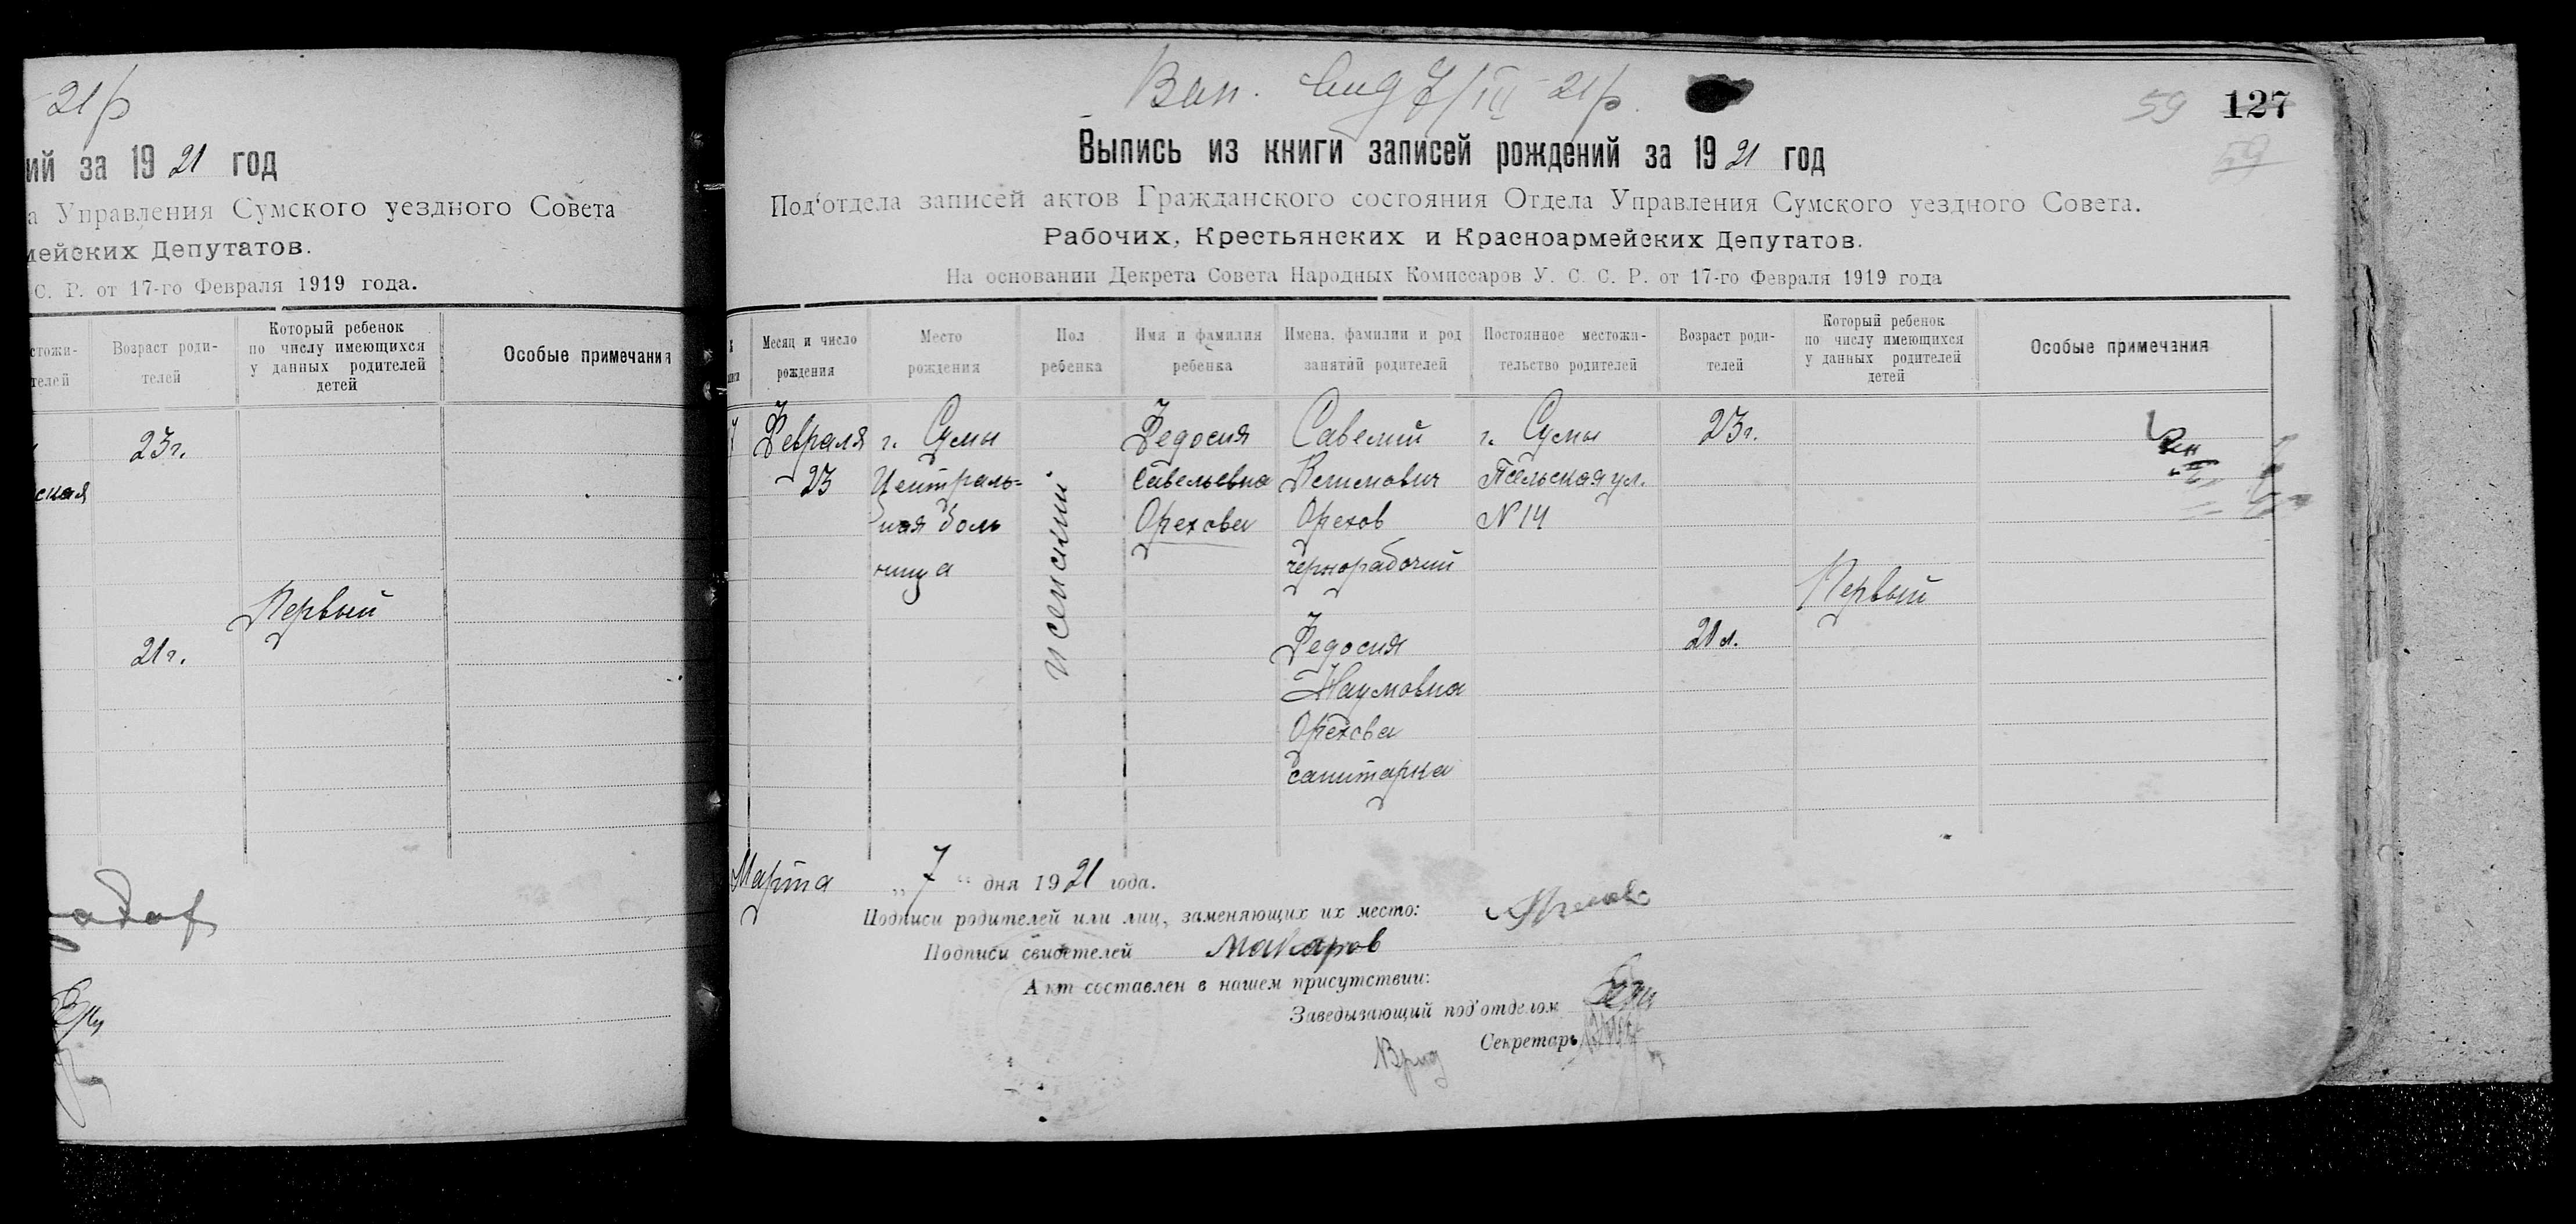 21р
ий за 1921 год
а Управления Сумского уездного Совета
мейских Депутатов.
С. Р. от 17-го Февраля 1919 года.
стожи-
телей
Возраст роди-
телей
Который ребенок
по числу имеющихся
у данных родителей
детей
Особые примечания
23г.
ская
Первый
21г.
Вып. 7/III 21р.
59 127
59
Выпись из книги записей рождений за 1921 год
Под'отдела записей актов Гражданского состояния Отдела Управления Сумского уездного Совета.
Рабочих, Крестьянских и Красноармейских Депутатов.
На основании Декрета Совета Народных Комиссаров У. С. С. Р. от 17-го Февраля 1919 года
Месяц и число
рождения
Место
рождения
Пол
ребенка
Имя и фамилия
ребенка
Имена, фамилии и род
занятий родителей
Постоянное местожи-
тельство родителей
Возраст роди-
телей
Который ребенок
по числу имеющихся
у данных родителей
детей
Особые примечания
Февраля
23
г. Сумы
Централь-
ная боль
ница
женский
Федосия
Савельевна
Орехова
Савелий
Орехов
чернорабочий
Федосия
Наумовна
Орехова
санитарка
г. Сумы
Псельская ул.
N 14
23г.
21л.
Первый
Марта „7“ дня 1921 года.
Подписи родителей или лиц, заменяющих их место:
Подписи свидетелей Макаров
Акт составлен в нашем присутствии:
Заведывающий под'отделом
Врид Секретарь